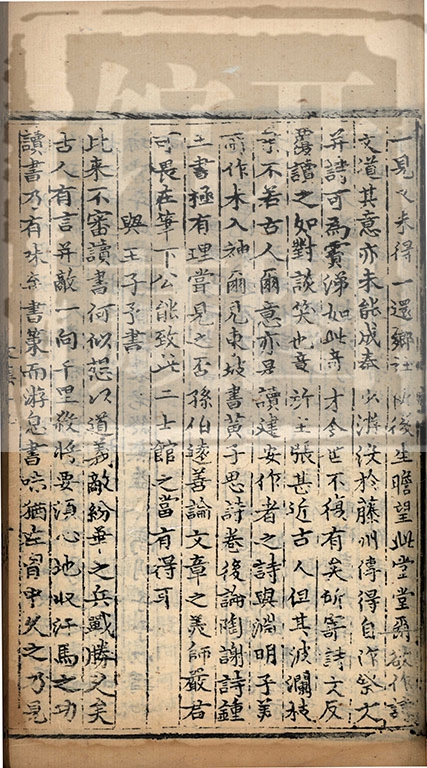 一見又未得一還鄉社後生瞻望此堂堂爾欲作詩
文道其意亦未能成奉少游没於藤州傳得自作祭文
并詩可為霣涕如此奇才今世不復有矣所寄詩文反
覆讀之如對談笑也意所主張甚近古人但其波瀾枝
葉不若古人爾意亦是讀建安作者之詩與淵明子美
所作未入神爾見東坡書黄子思詩卷後論陶謝詩鍾
王書極有理嘗見之否孫伯遠善論文章之美師嚴君
可畏在筆下公能致此二士館之當有得耳
與王子予書
比来不審讀書何似想以道義敵紛華之兵戰勝久矣
古人有言并敵一向千里殺將要須心地收汗馬之功
讀書乃有味棄書策而游息書味猶在胷中久之乃見